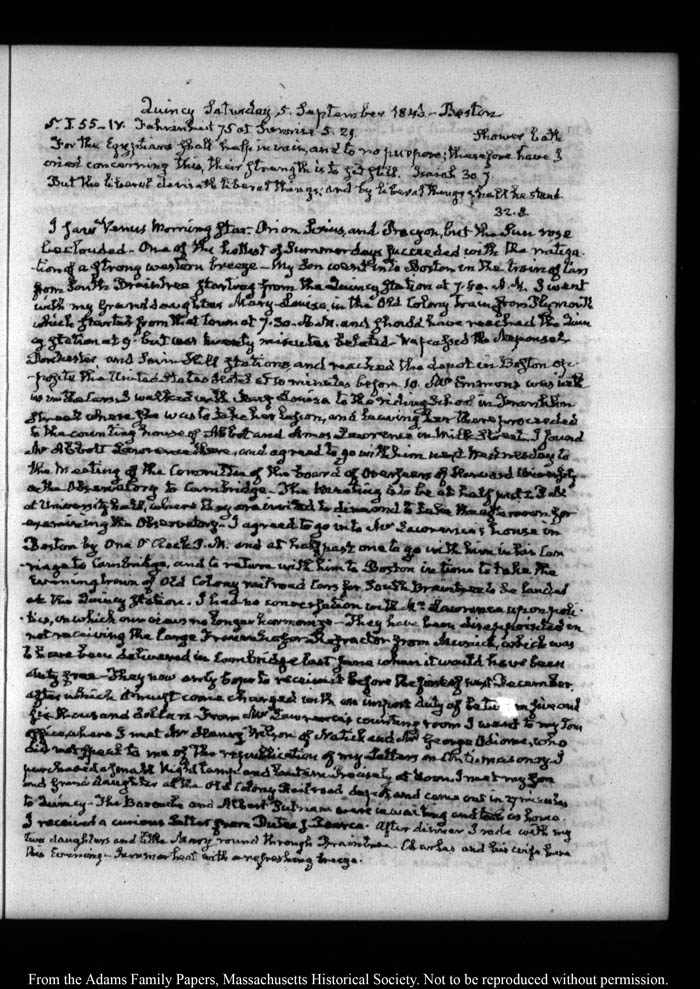 Quincy Saturday 5. September 1846 - Boston
5. I. 55 - IV. Fahrenheit 75 at Sunrise 5. 29. Shower bath
For the Egyptians shall help in vain, and to no purpose; therefore have I
cried concerning this, their strength is to sit still. Isaiah 30. 7.
But the liberal deviseth liberal things; and by liberal things shall he stand
32. 8.
I saw Venus Morning Star. Orion Sirius, and Procyon, but the Sun rose
beclouded - One of the hottest of Summer days succeeded with the mitiga-
-tion of a strong western breeze - My Son went into Boston in the train of Cars
from South Braintree starting from the Quincy Station at 7. A.M. I went
with my Granddaughter Mary-Louisa, in the Old Colony train from Plymouth
which started from that town at 7.30. A.M. and should have reached the Quin-
cy station at 9. but was twenty minutes belated. We passed the Neponset
Dorchester and Stations, and reached the depot in Boston op-
-posite the United States Hotel at 10 minutes before 10. Mr Emmons was with
us in the Cars. I walked with Mary Louisa to the riding School in Franklin
Street where she was to take her lesson, and leaving her there proceeded
to the counting house of Abbot and Amos Lawrence in Milk Street. I found
Mr Abbott Lawrence there, and agreed to go with him next Wednesday to
the Meeting of the Committee of the board of Overseers of Harvard University
on the Observatory to Cambridge - The Meeting is to be at half past 2. P.M.
at University hall, where they are invited to dine and to take the afternoon for
examining the Observatory. I agreed to go into Mr Lawrence's house in
Boston by One O'Clock P.M. and at half past one to go with him in his Car
-riage to Cambridge, and to return with him to Boston in time to take the
Evening train of Old Colony railroad Cars for South Braintree to be landed
at the Quincy Station. I had no conversation with Mr Lawrence upon poli-
-tics, on which our views no longer harmonize - They have been disappointed in
not receiving the large Refractor from Munich, which was
to have been delivered in Cambridge last June when it would have been
duty free - They now only hope to receive it before the first of next December,
after which it must come charged with an import duty of between five and
six thousand dollars. From Mr Lawrence's counting room I went to my Son's
Office, where I met Mr Henry Wilson of Natick and Mr George Odiorne, who
did not speak to me of the republication of my Letters on Antimasonry. I
purchased a small Night lamp and lantern. Precisely at Noon, I met my Son
and Grand daughter at the Old Colony Railroad depot, and came out in 27 minutes
to Quincy - The Barouche and Albert Putnam were in waiting and took us home.
I received a curious Letter from Dutee J. Pearce. After dinner I rode with my
two daughters and little Fanny round through Braintree. Charles and his wife here
this Evening. Summer heat with a refreshing breeze.
From the Adams Family Papers, Massachusetts Historical Society. Not to be reproduced without permission.